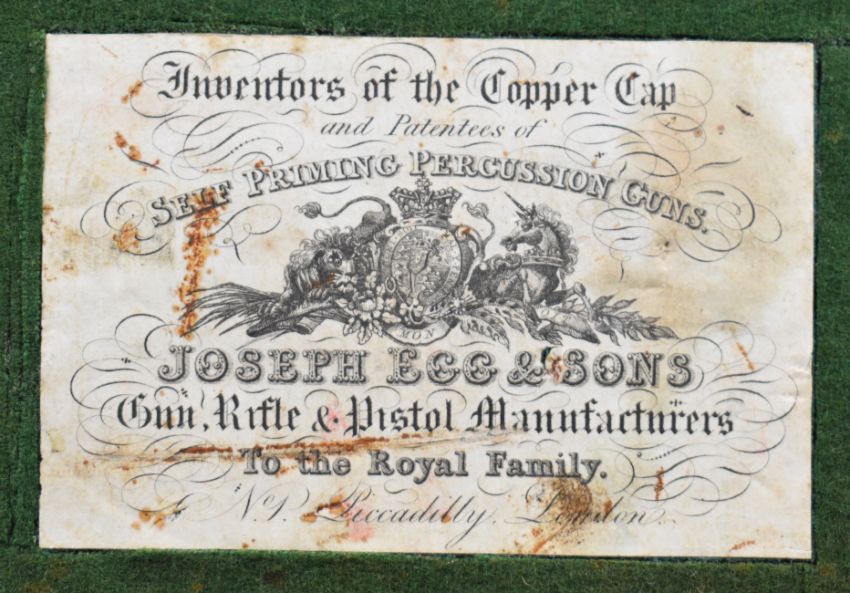 Inventors of the Copper Cap
and Patentees of
SELF PRIMING PERCUSSION GUNS.
MON
JOSEPH EGG & SONS
Gun, Rifle & Pistol Manufacturers
To the Royal Family.
No. 1. Piccadilly, London.